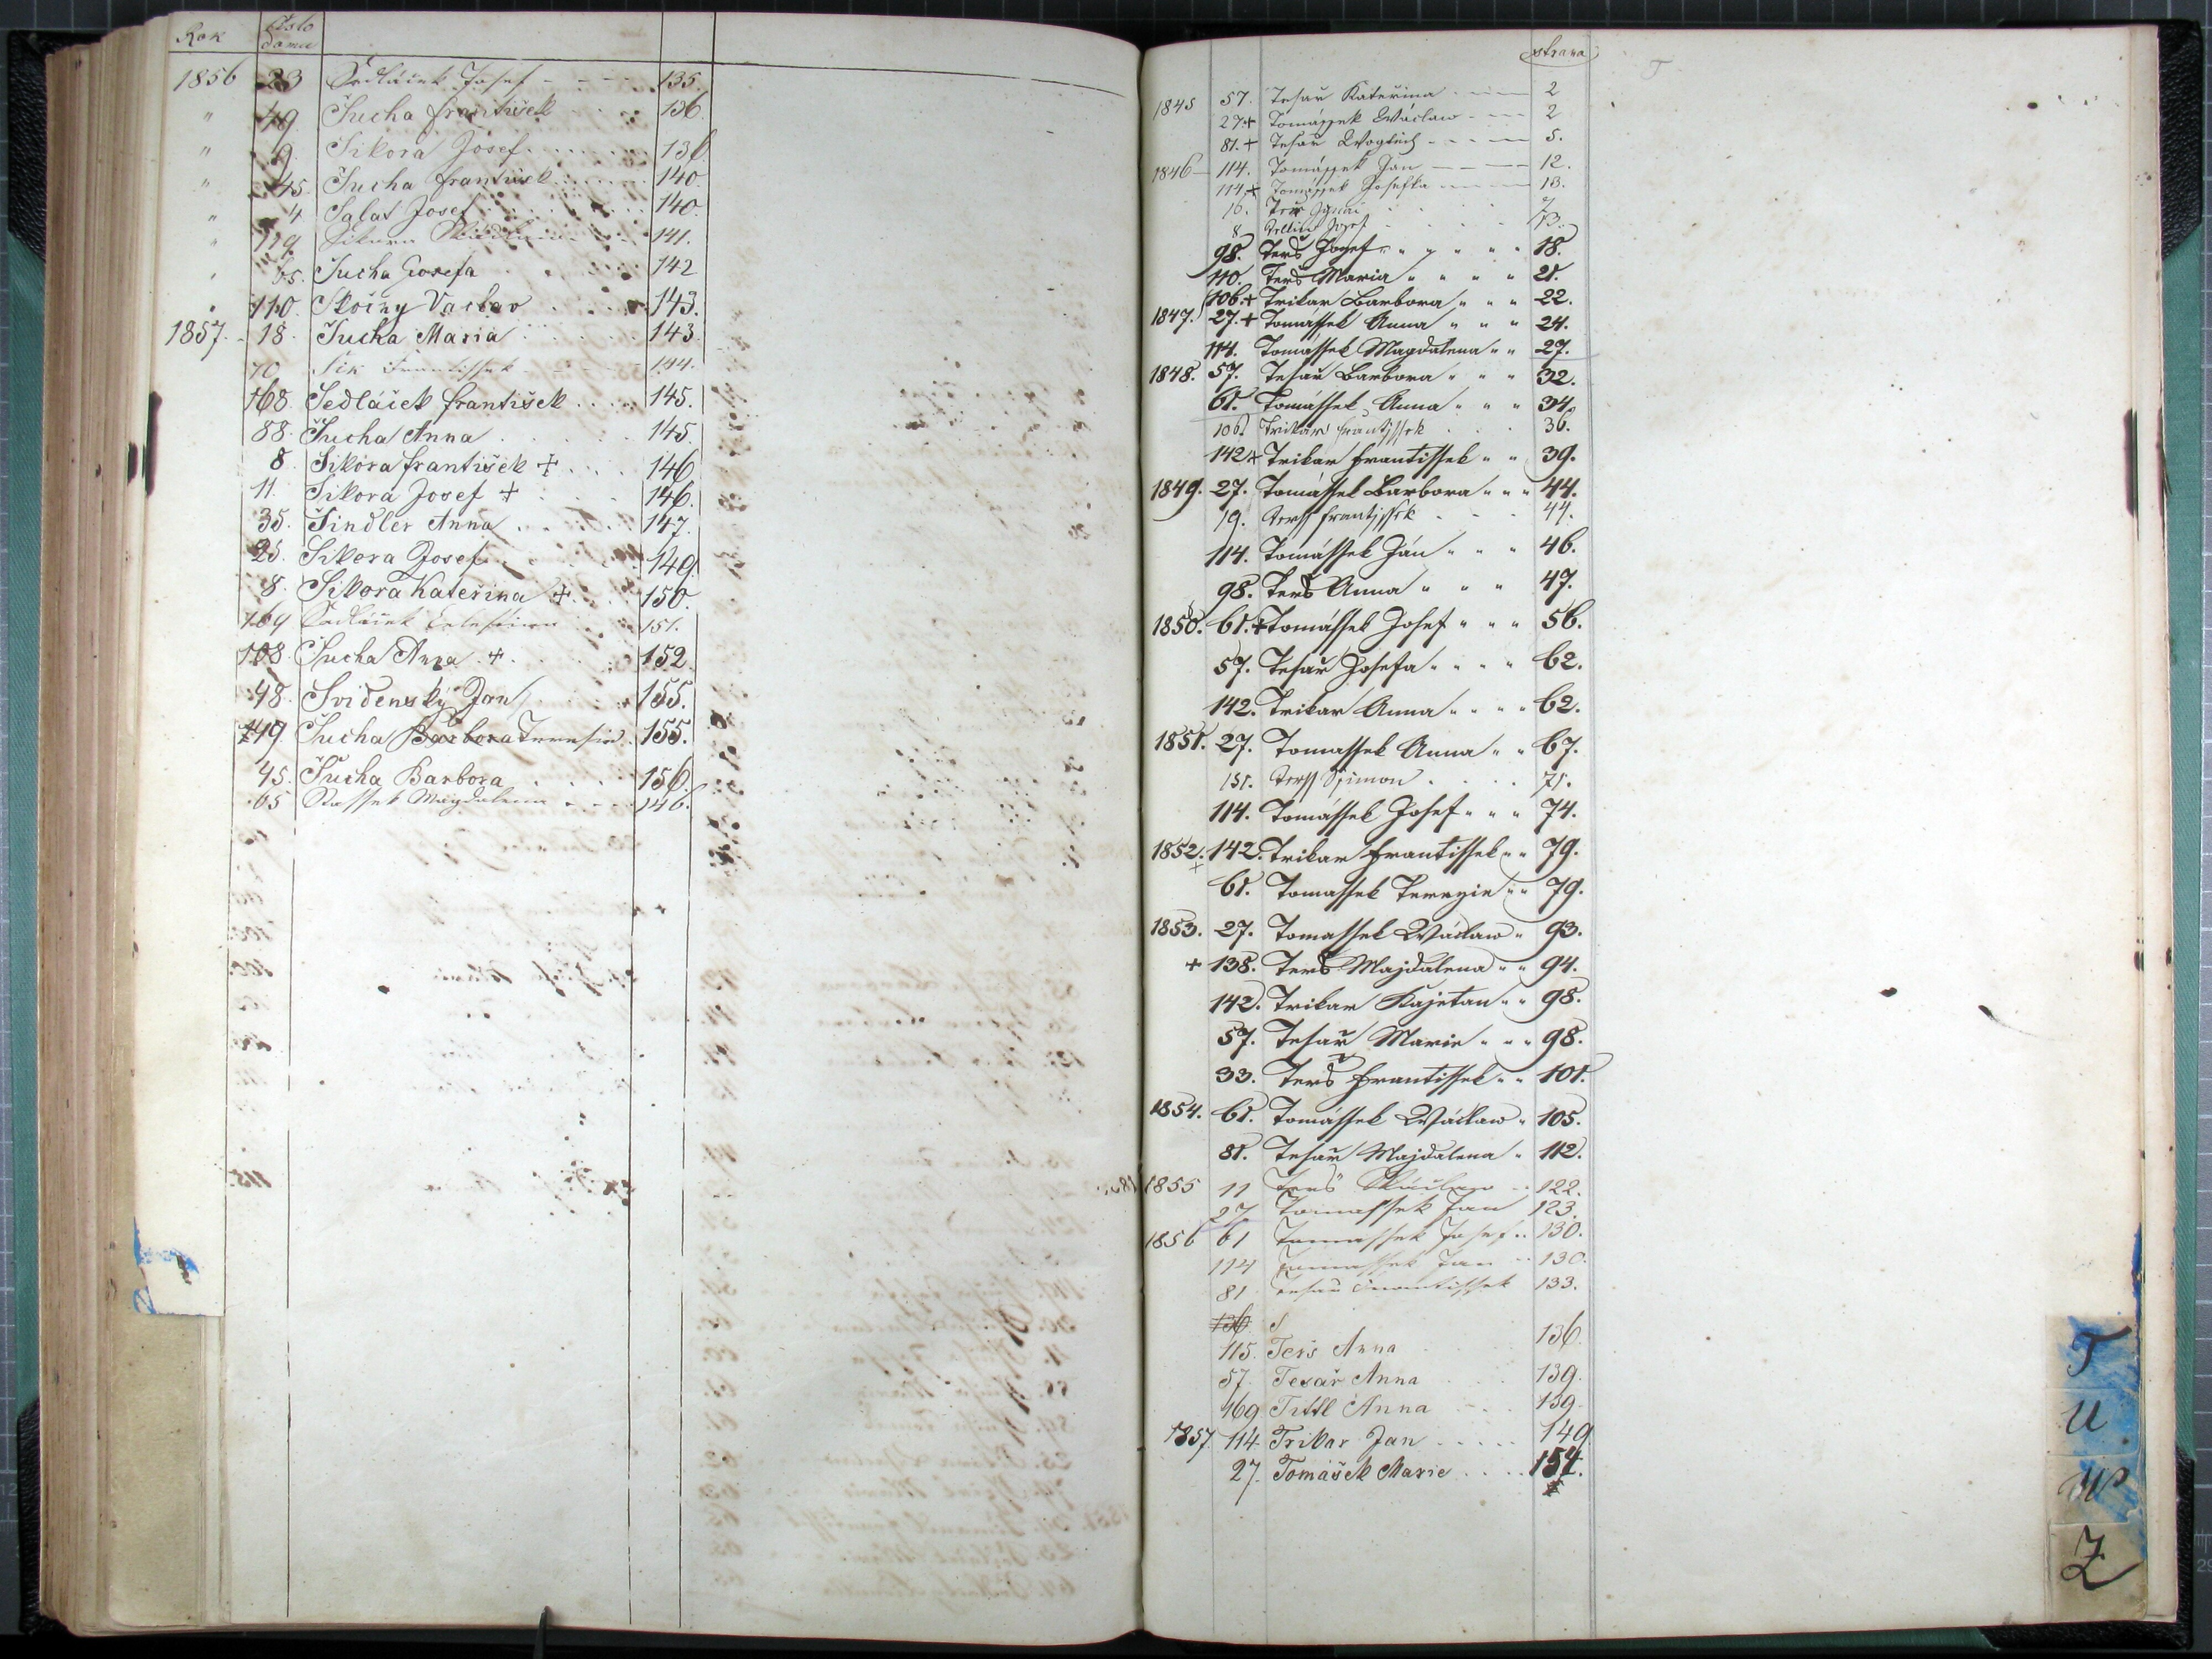 Rok Číslo domu
1856 23 Sedláček Josef 135.
" 49 Sucha František 136
" 9. Sikora Josef 136
" 45. Sucha František 140
" 4 Salat Josef 140.
" 119 Sikora 141.
" 65. Sucha Josefa 142
" 110. Skočny Vaclav 143.
1857. 18. Sucha Maria 143
70 Sik Frantissek 144.
168. Sedláček František 145.
88. Sucha Anna 145.
8. Sikora František + 146
11. Sikora Josef + 146.
35. Šindler Anna 147.
25. Sikora Josef 149
8. Sikora Kateřina + 150.
169 Sedláček Celestina 151.
108. Sucha Anna + 152
48. Svidenský Jan 155.
149. Sucha Barbora Teresie 155.
45. Sucha Barbora 156.
65 Stassek Magdalena 146.
strana
T
1845 57. Tesař Kateřina 2
27.+ Tomássek Wáclaw 2
81.+ Tesař 5.
1846 114. Tomássek Jan 12.
114.+ Tomássek Josefka 13.
16. Ters Ignac
8. Josef 13.
98. Terš Josef " " " " 18.
110. Terš Maria " " " " 21.
106.+ Trikar Barbora " " " 22.
1847. 27.+ Tomássek Anna " " " 24.
114. Tomassek Magdalena " " 27.
1848. 57. Tesař Barbora " " " 32.
61. Tomássek Anna " " " 34.
106. Trikar Frantissek 36.
142+ Trikar Frantissek " " 39.
1849. 27. Tomássek Barbora " " " 44.
19. Terss Frantissek 44.
114. Tomássek Ján " " " 46.
98. Terš Anna " " " 47.
1850. 61.+ Tomássek Josef " " " 56.
57. Tesař Josefa " " " " 62.
142. Trikar Anna " " " " 62.
1851. 27. Tomassek Anna " " 67.
151. Terss Ssimon 71.
114. Tomássek Josef " " " 74.
1852. 142. Trikar Frantissek " " 79.
+ 61. Tomassek Terezie " " 79.
1853. 27. Tomassek Wáclaw " 93.
+ 138. Terš Majdalena " " 94.
142. Trikar Kajetan " " 98.
57. Tesař Marie " " " 98.
33. Terš Frantissek " " 101.
1854. 61. Tomássek Wáclaw " 105.
81. Tesař Majdalena " 112.
1855 11 Terš Václav 122.
27 Tomassek Jan 123.
1856 61 Tomassek Josef 130.
114 Tomassek Jan 130.
81 Tesař Frantissek 133.
136 S
115. Terš Anna 136.
57. Tesař Anna 139.
169 Tittl Anna 139.
1857. 114. Trikar Jan 149
27. Tomášek Marie 154.
T
U
W
Z